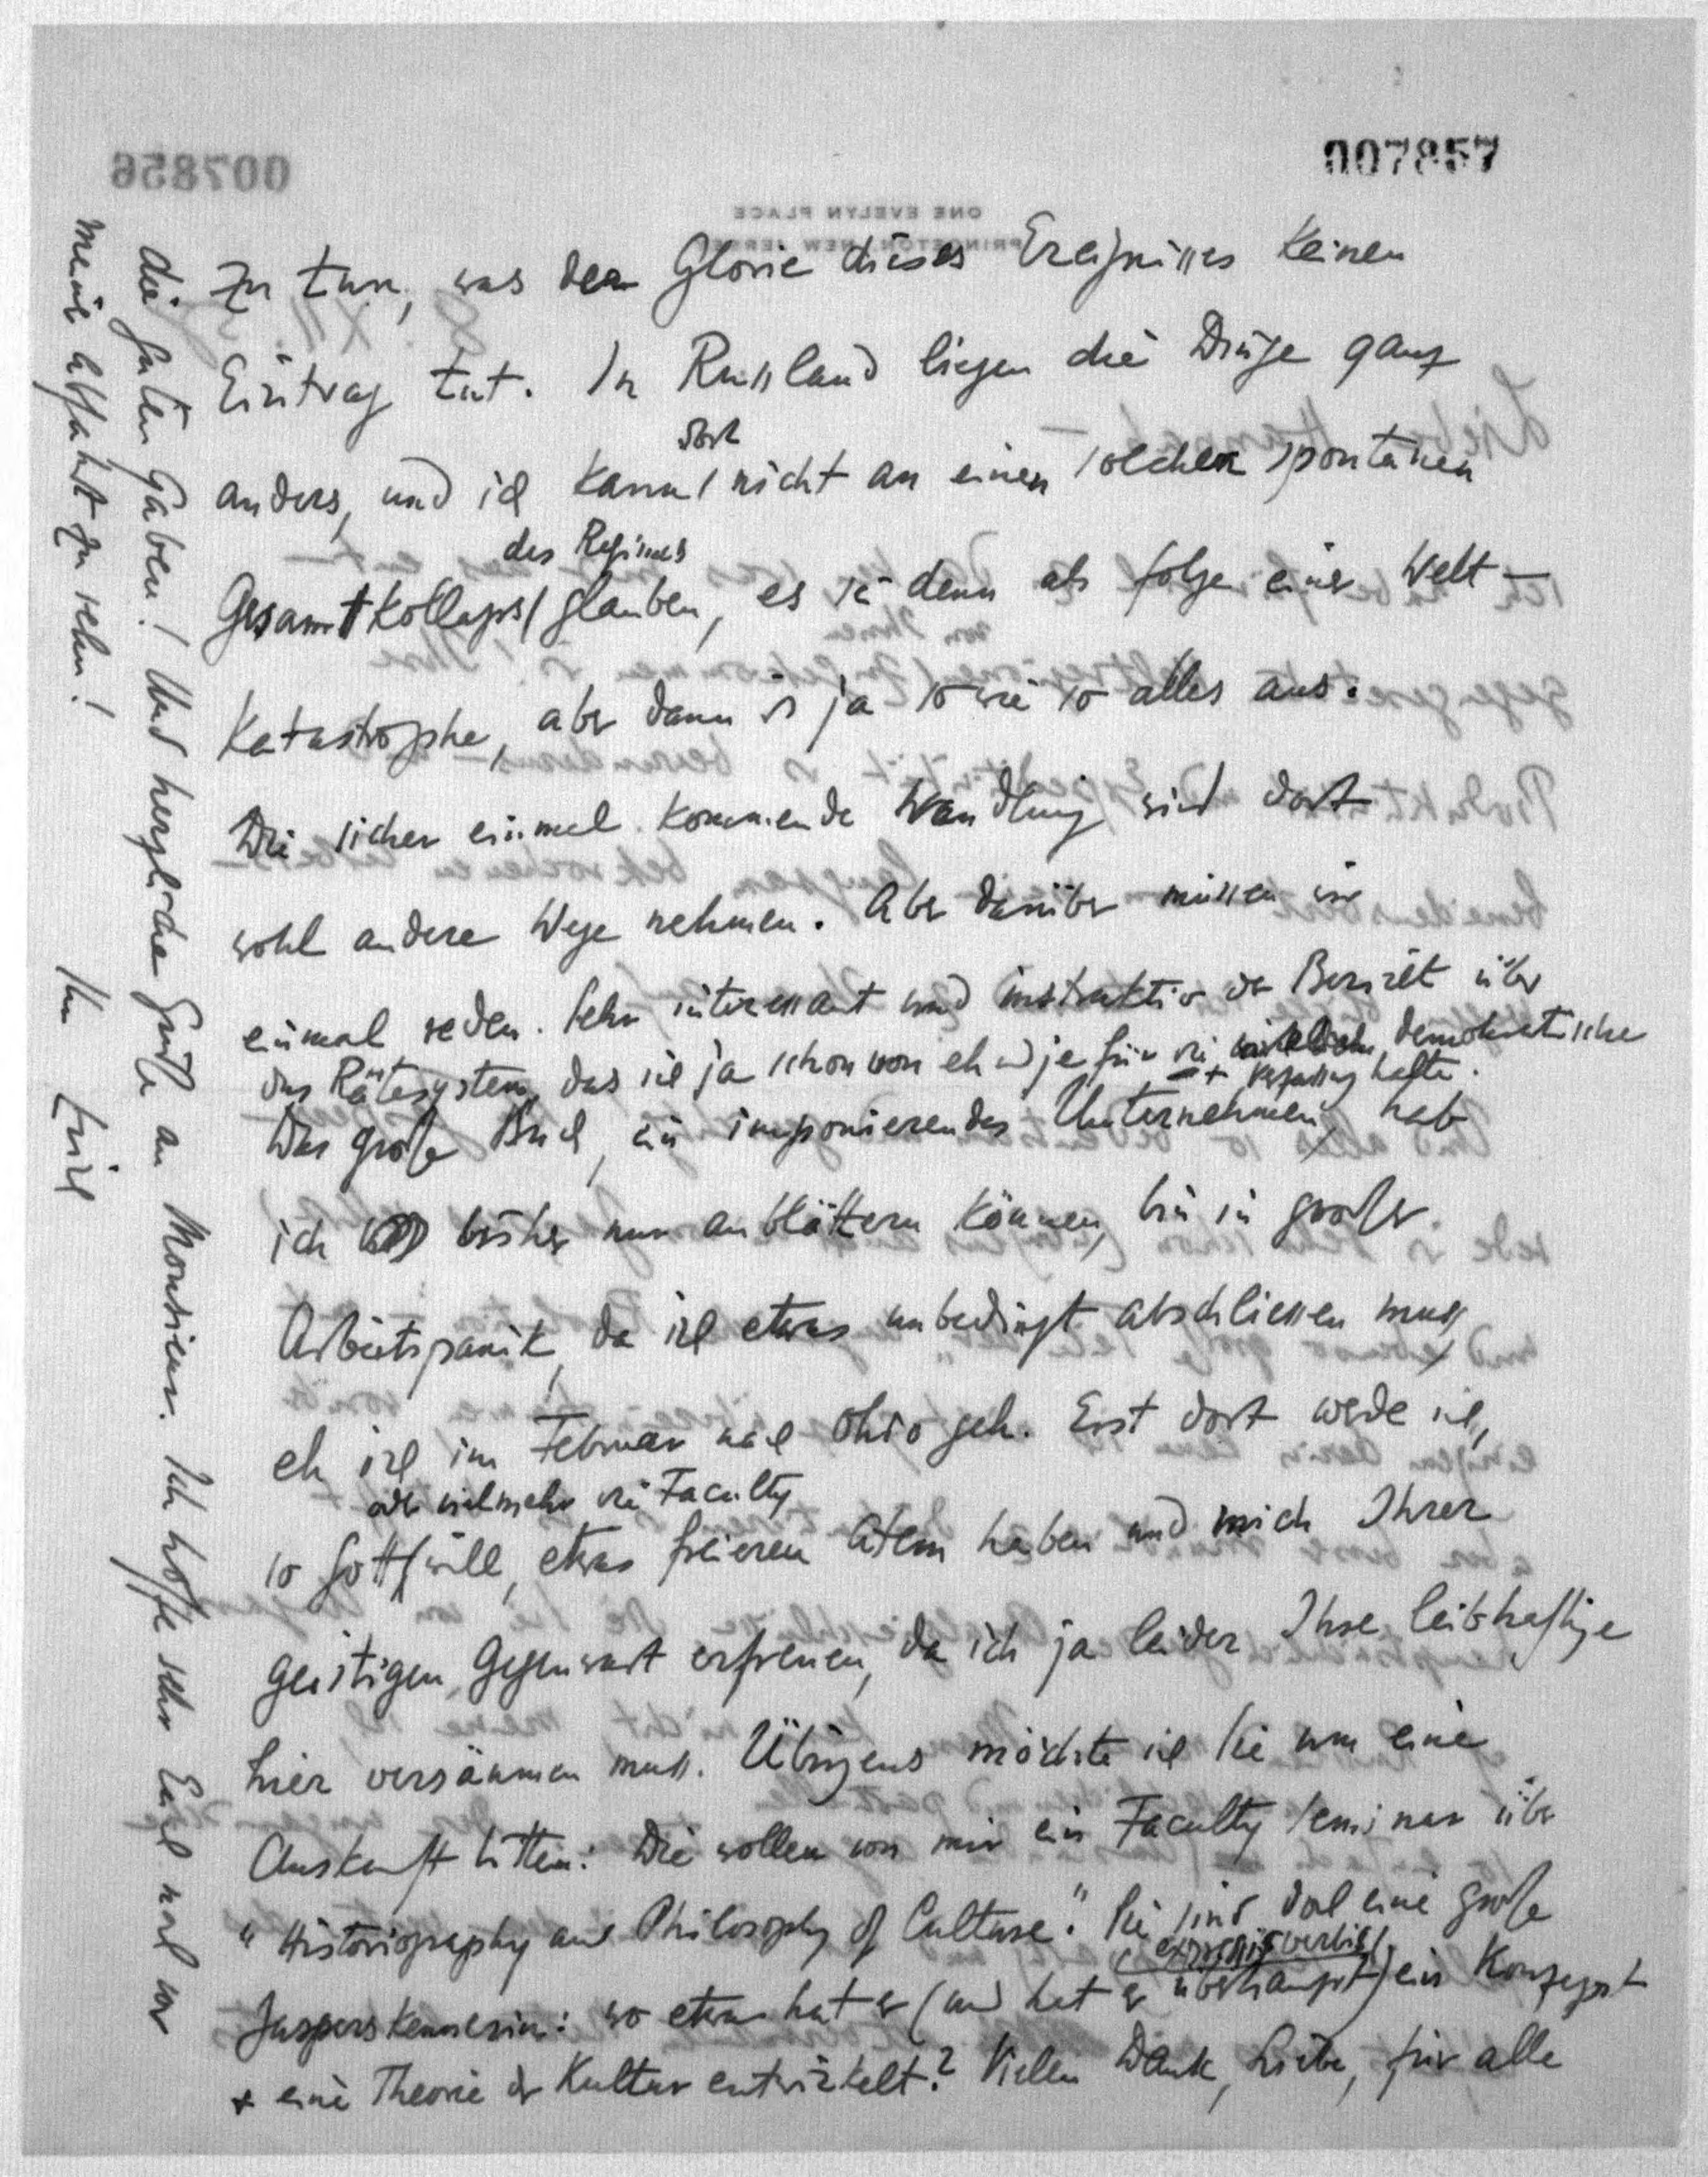 007857
zu tun, was der Glorie dieses Ereignisses keinen
Eintrag tut. In Russland liegen die Dinge ganz
anders, und ich kann dort nicht an einen solchen spontanen
Gesamtkollaps des Regimes glauben, es sei denn als Folge einer Welt-
katastrophe, aber dann is ja so wie so alles aus.
Die sicher einmal kommende Wandlung wird dort
wohl andere Wege nehmen. Aber darüber müssen wir
einmal reden. Sehr interessant und instruktiv der Bericht über
das Rätesystem, das ich ja schon von eh u je für die demokratische
Verfassung halte.
Das große Buch, ein imponierendes Unternehmen, hab
ich bisher nur anblättern können, bin in großer
Arbeitspanik, da ich etwas unbedingt abschliessen muss,
eh ich im Februar nach Ohio geh. Erst dort werde ich,
so Gott oder vielmehr die Faculty will, etwas freieren Atem haben und mich Ihrer
geistigen Gegenwart erfreuen, da ich ja leider Ihre leibhaftige
hier versäumen muss. Übrigens möchte ich Sie um eine
Auskunft bitten: Die wollen von mir ein Faculty Seminar über
"Historiography and Philosophy of Culture." Sie sind doch eine große
Jasperskennerin: wo etwa hat er (und hat er überhaupt) expressis verbis ein Konzept
+ eine Theorie der Kultur entwickelt? Vielen Dank, Liebe, für alle
die guten Gaben! Und herzliche Grüße an Monsieur. Ich hoffe sehr Euch noch vor
meiner Abfahrt zu sehen!
Ihr Erich
007856
ONE EVELYN PLACE
PRINCETON, NEW JERSEY